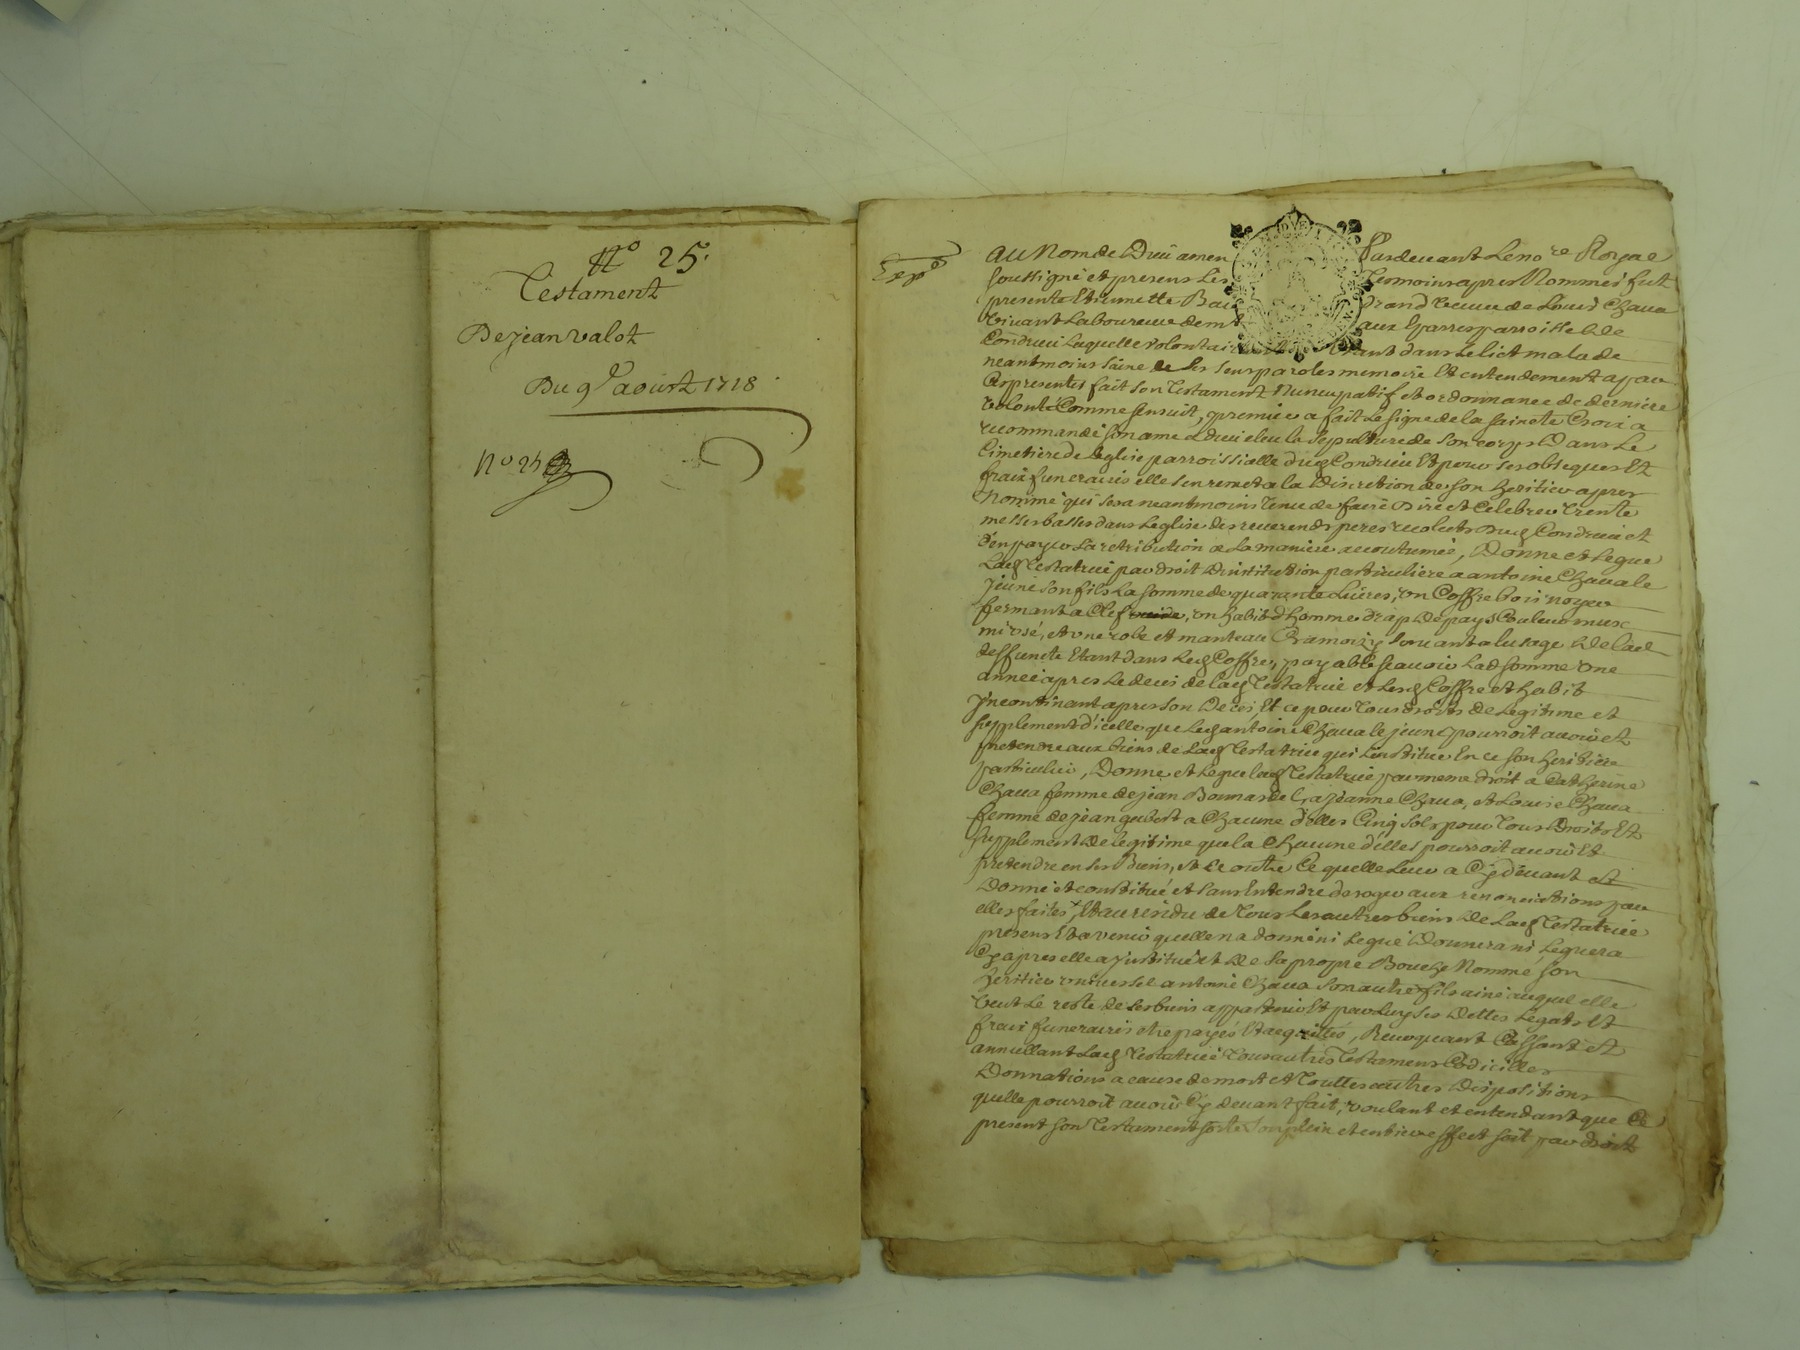 N° 25.
Testament
De jean valot
Du 9e aoust 1718
N° 25
Exp°
Au Nom de Dieu amen Pardevant Le no.re Royal
soussigné et presens Les Tesmoins apres Nommés fut
presente Etiennette Bau drand veuve de Louis Chava
vivant Laboureur demt aux parroisse de
Condrieu Laquelle volontai etant dans le lict malade
neantmoins saine de ses sens paroles memoire Et entendement a par
Ces presentes fait son Testament Nuncupatif et ordonnance de derniere
volonté Comme sensuit, premier a fait Le signe de la saincte Croix a
recommandé son ame a dieu eleu la Sepulture de son corps Dans Le
Cimetiere de Leglise parroissialle dud Condrieu Et pour ses obseques Et
fraix funeraires elle sen remet a la Discretion de son heritier apres
Nommé qui sera neantmoins Tenu de faire Dire et Celebrer Trente
messes basses dans Leglise des reverends peres recolects Dud Condrieu et
den payer La retribution a La maniere accoutumée, Donne et Legue
Lad Testatrice par droit Dinstitution particuliere a antoine Chava le
jeune son fils La somme de quarante Livres, un Coffre bois noyer
fermant a Clef, un habit dhomme drap De pays Couleur musc
mi usé, et une robe et manteau Cramoizy servant a lusage De lad
deffuncte Etant dans Led Coffre, payable scavoir Lad somme une
année apres Le deces de lad Testatrice et Lesd Coffre et habit
Incontinant apres son Deces Et ce pour Tous droits de Legitime et
supplement dicelle que Led antoine Chava le jeune pourroit avoir et
pretendre aux biens de Lad Testatrice qui Linstitue En ce son heritier
particulier, Donne et Legue lad Testatrice par meme droit a Catherine
Chava femme de jean Bonnard, a jeanne Chava, et Louise Chava
femme de jean gubert a Chacune d'elles Cinq sols pour Tous Droits Et
supplement De legitime que la Chacune d'elles pourroit avoir Et
pretendre en ses Biens, et ce outre Ce quelle Leur a Cy devant et
Donné et constitué et sans Entendre deroger aux renonciations par
elles faites, Et au residu de Tous Les autres biens De Lad Testatrice
presens Et avenir quelle na donné ni Legué Donnera ni Leguera
Cy apres elle a justitué et De sa propre Bouche Nommé son
heritier universel antoine Chava son autre fils ainé auquel elle
veut Le reste de ses biens appartenir Et par Luy ses Dettes Legats Et
fraix funeraires etre payés Et acquittés, Revoquant Cassant et
annullant Lad Testatrice Tous autres Testamens Codicilles
Donnations a cause de mort et Touttes autres Dispositions
quelle pourroit avoir Cy devant fait, voulant et entendant que Ce
present son Testament sorte son plein et entier effect soit par droit